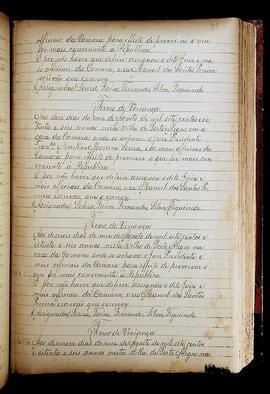 officiaes da Camara para effeito de proverem o que
for mais conveniente a Republica.
E por não haver que deferir assignou o dito Juiz e ma
is officiaes da Camara, eu Manoel dos Santos Pereira
escrivão que escrevo.
Assignados Seara, Faria, Fernandes, Silva, Figueiredo
Termo de Vereança
Aos dous dias do mez de Agosto de mil sete centos e oi
tenta e seis annos nesta Villa de Porto Alegre em a
casa da Camara onde se achava o Juiz Presidente
Martins Moreira Seara, e os mais officiaes da
Camara para effeito de proverem o que for mais conve
niente a Republica.
E por não haver que deferir assignou o dito Juiz e
mais officiaes da Camara, eu Manoel dos Santos Pe
reira escrivão, que o escrevo.
Assignados Seara, Faria, Fernandes, Silva, Figueiredo
Termo de Vereança
Aos dias do mez de Agosto de mil sete centos e
oitenta e seis annos, nesta Villa de Porto Alegre na
casa da Camara onde se achava o Juiz Presidente e
mais officiaes da Camara para effeito de proverem o
que for mais conveniente a Republica.
E por não haver que deferir assignou o dito Juiz e
mais officiaes da Camara, eu Manoel dos Santos
Pereira escrivão que escrevo.
Assignados Seara, Faria, Fernandes, Silva, Figueiredo
Termo de Vereança
Aos dias do mez de Agosto de mil sete centos
e oitenta e seis annos nesta Villa de Porto Alegre na